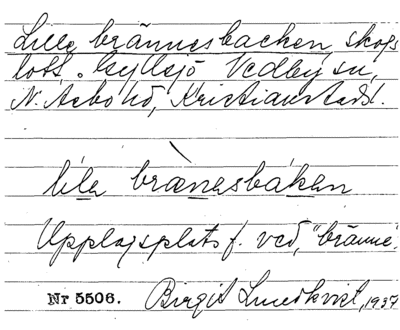 Lille brännesbacken, skogs
lott. Gyllsjö Vedby sn,
N. Åsbo hd, Kristianstads l.
lila brænasbakan
Upplagsplats f. ved, "bränne".
Nr 5506. Birgit Lundkvist, 1937